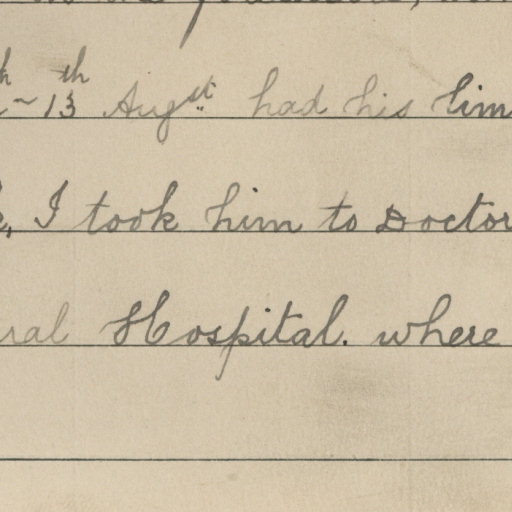 13th Augst had his lim
I took him to Doctor
ral Hospital. where